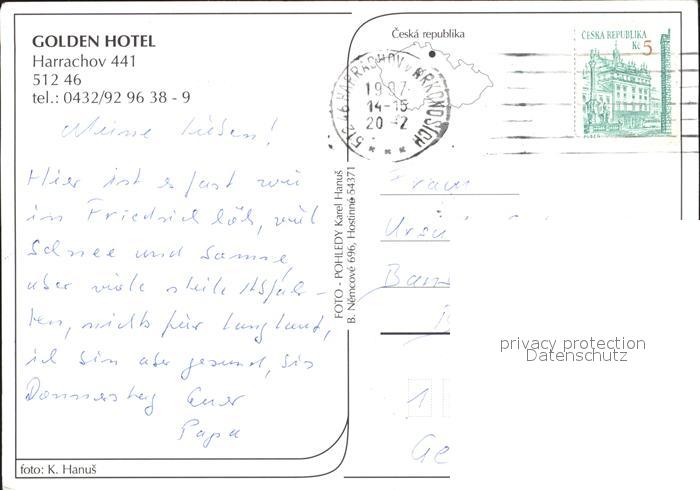 GOLDEN HOTEL
Harrachov 441
512 46
tel.: 0432/92 96 38 - 9
Meine Lieben!
Hier ist es fast wie
in Friedrich
Schnee und Sonne
aber viele steile Abfahr-
ten, nichts für Langlauf,
ich bin aber gesund, bis
Donnerstag Euer
Papa
foto: K. Hanuš
FOTO - POHLEDY Karel Hanuš
B. Němcové 696, Hostinné 54371
Česká republika
512 46 HARRACHOV v KRKONOŠÍCH
1997
14-15
20 -2
ČESKÁ REPUBLIKA
Kč 5
PLZEŇ
Frau
Ursu
Ban
1
Ge
privacy protection
Datenschutz